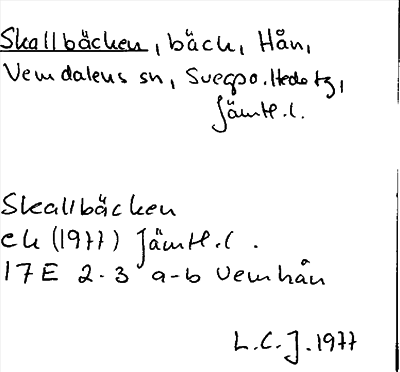 Skallbäcken, bäck, Hån,
Vemdalens sn, Svegs o. Hede tg,
Jämtl. l.
Skallbäcken
ek (1977) Jämtl. l.
17E 2-3 a-b Vemhån
L. C. J. 1977